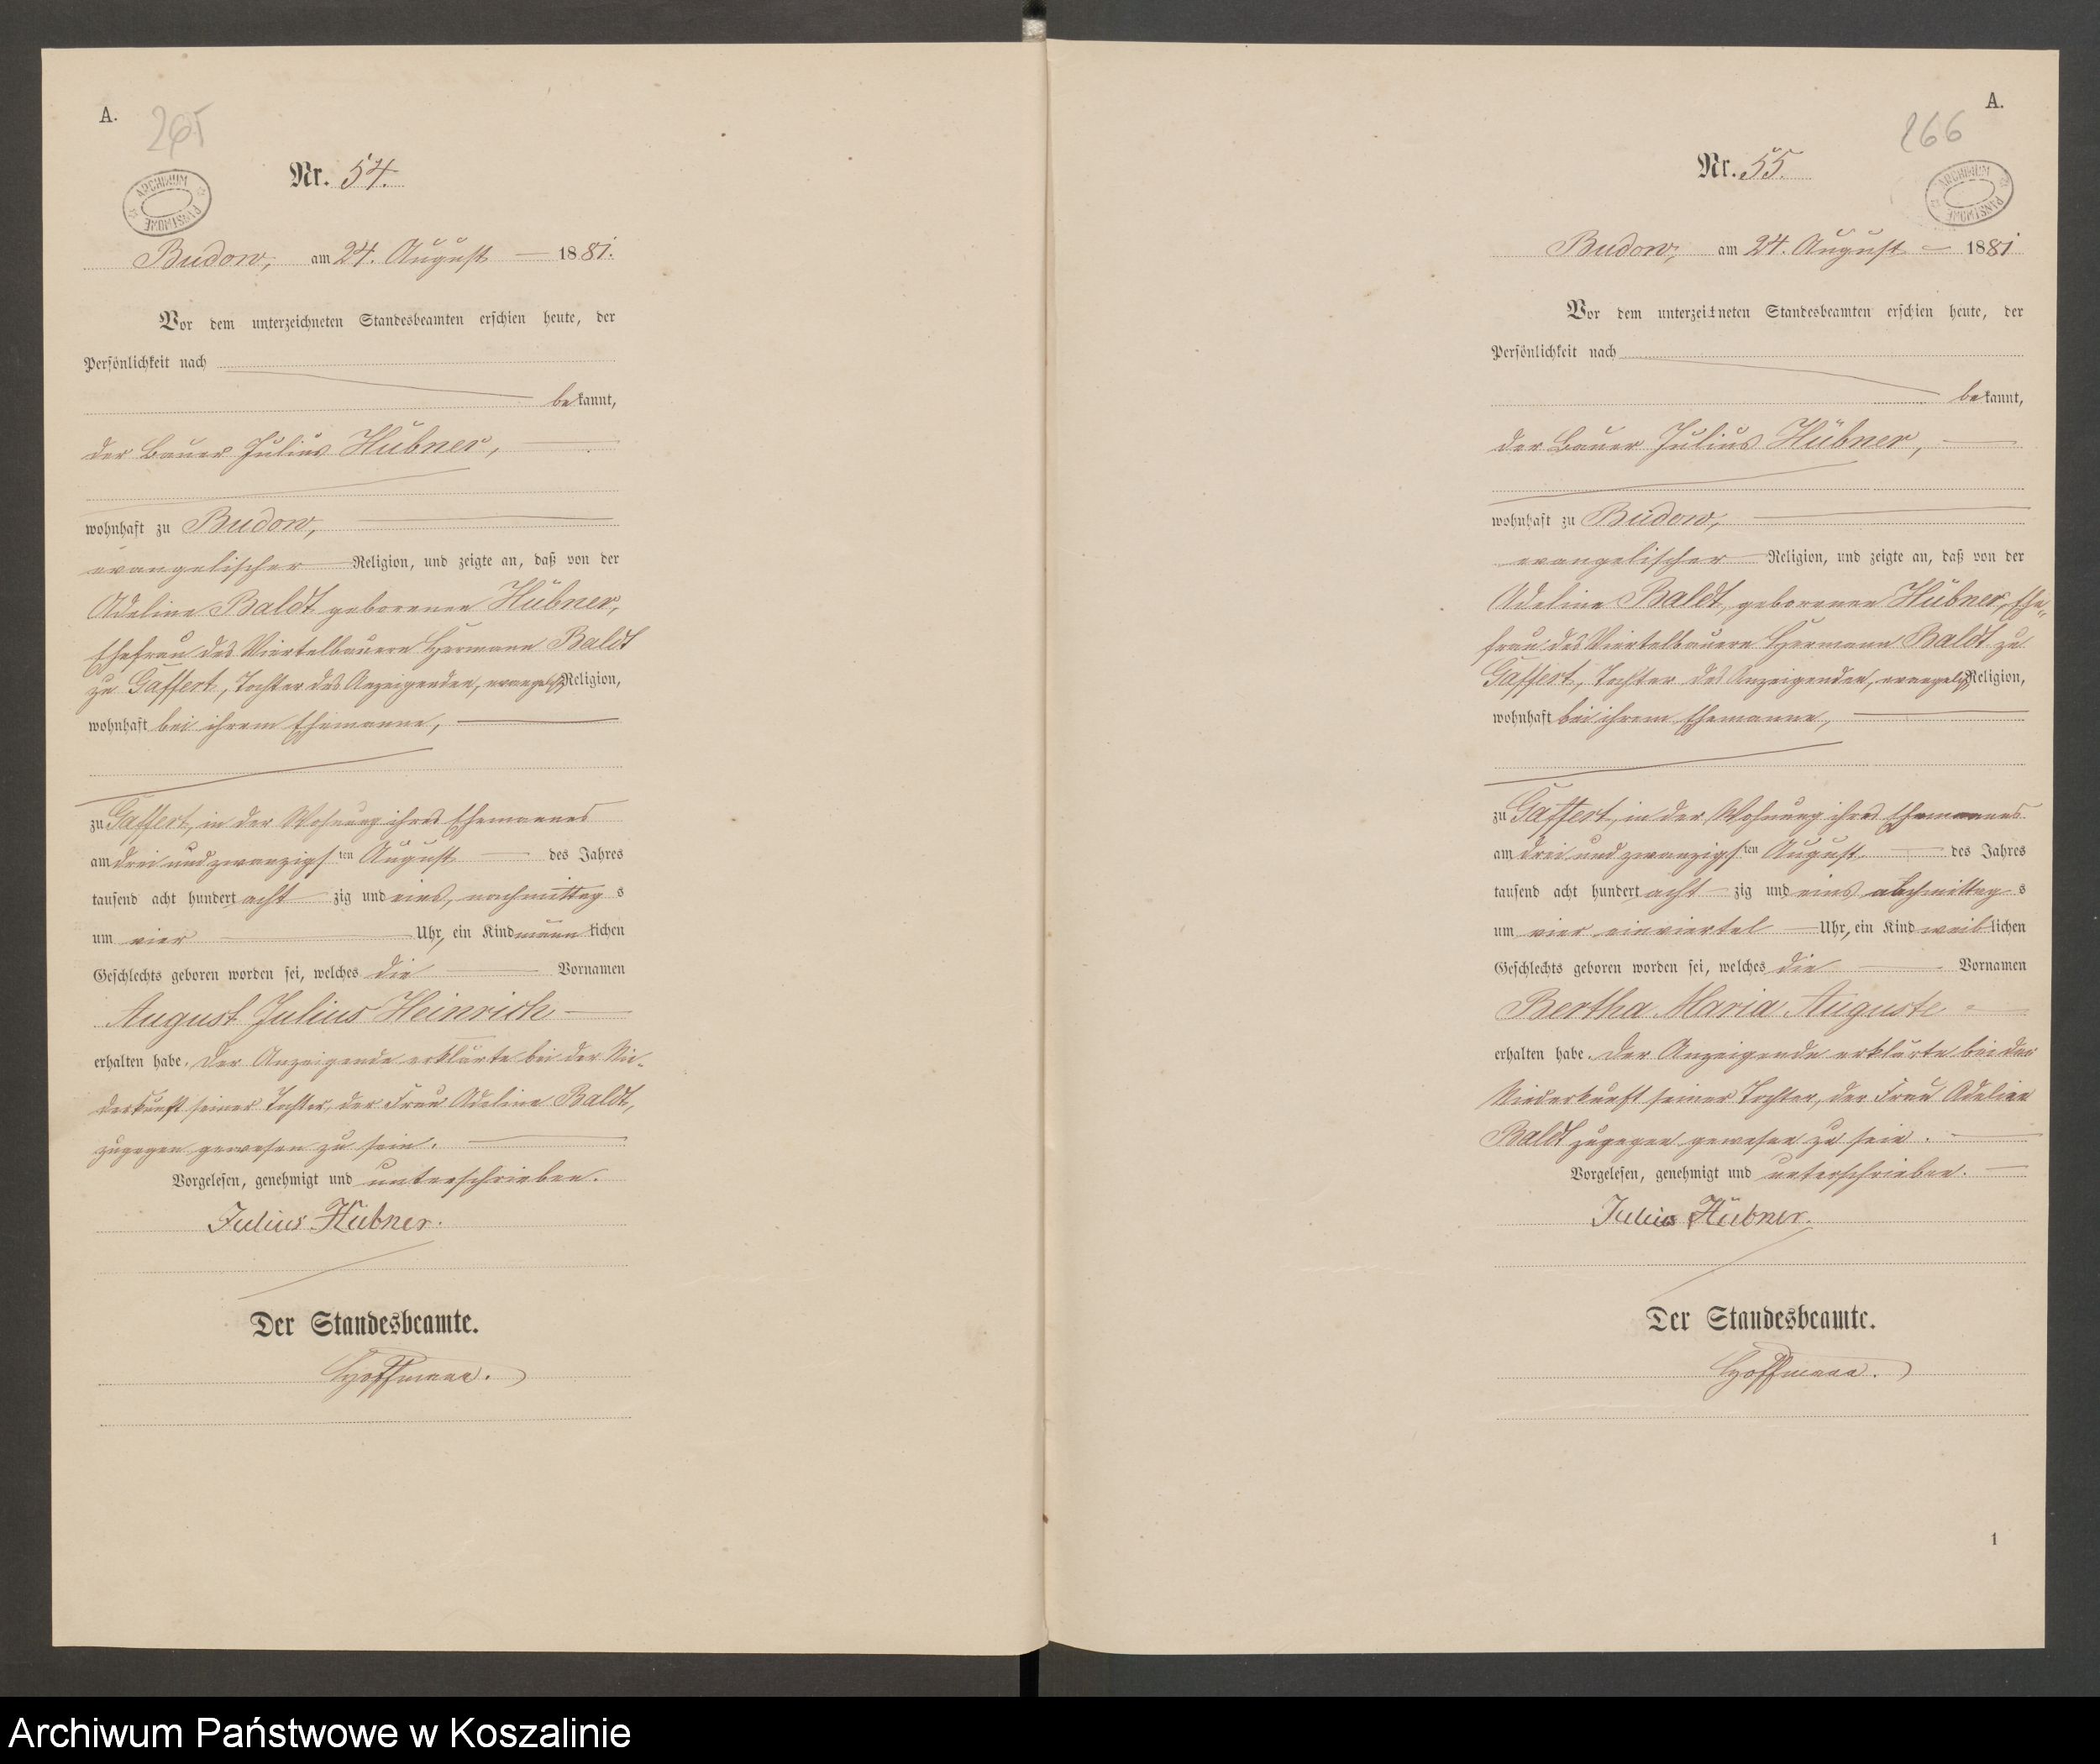 A.
265
Nr. 54.
ARCHIWUM PAŃSTWOWE
Budow, am 24. August 1881.
Vor dem unterzeichneten Standesbeamten erschien heute, der
Persönlichkeit nach
bekannt,
der Bauer Julius Hübner,
wohnhaft zu Budow,
evangelischer Religion, und zeigte an, daß von der
Adeline Baldt geborenen Hübner,
Ehefrau des Viertelbauern Hermann Baldt
zu Gaffert, Tochter des Anzeigenden, evangelisch Religion,
wohnhaft bei ihrem Ehemanne,
zu Gaffert, in der Wohnung ihres Ehemannes
am drei und zwanzigsten August des Jahres
tausend acht hundert acht zig und eins, nachmittag s
um vier Uhr, ein Kind männlichen
Geschlechts geboren worden sei, welches die Vornamen
August Julius Heinrich
erhalten habe. Der Anzeigende erklärte bei der Nie-
derkunft seiner Tochter, der Frau Adeline Baldt,
zugegen gewesen zu sein.
Vorgelesen, genehmigt und unterschrieben.
Julius Hübner.
Der Standesbeamte.
Hoffmann.
A.
266
Nr. 55.
ARCHIWUM PAŃSTWOWE
Budow, am 24. August 1881
Vor dem unterzeichneten Standesbeamten erschien heute, der
Persönlichkeit nach
bekannt,
der Bauer Julius Hübner,
wohnhaft zu Budow,
evangelischer Religion, und zeigte an, daß von der
Adeline Baldt, geborenen Hübner, Ehe-
frau des Viertelbauern Hermann Baldt zu
Gaffert, Tochter des Anzeigenden, evangelisch Religion,
wohnhaft bei ihrem Ehemanne,
zu Gaffert, in der Wohnung ihres Ehemannes
am drei und zwanzigsten August des Jahres
tausend acht hundert acht zig und eins nachmittag s
um vier einviertel Uhr, ein Kind weiblichen
Geschlechts geboren worden sei, welches die Vornamen
Bertha Maria Auguste
erhalten habe. Der Anzeigende erklärte bei der
Niederkunft seiner Tochter, der Frau Adeline
Baldt zugegen gewesen zu sein.
Vorgelesen, genehmigt und unterschrieben.
Julius Hübner.
Der Standesbeamte.
Hoffmann.
1
Archiwum Państwowe w Koszalinie